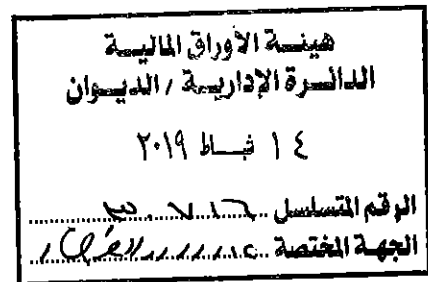 هيئة الأوراق المالية
الدائرة الإدارية / الديوان
١٤ شباط ٢٠١٩
الرقم المتسلسل
الجهة المختصة